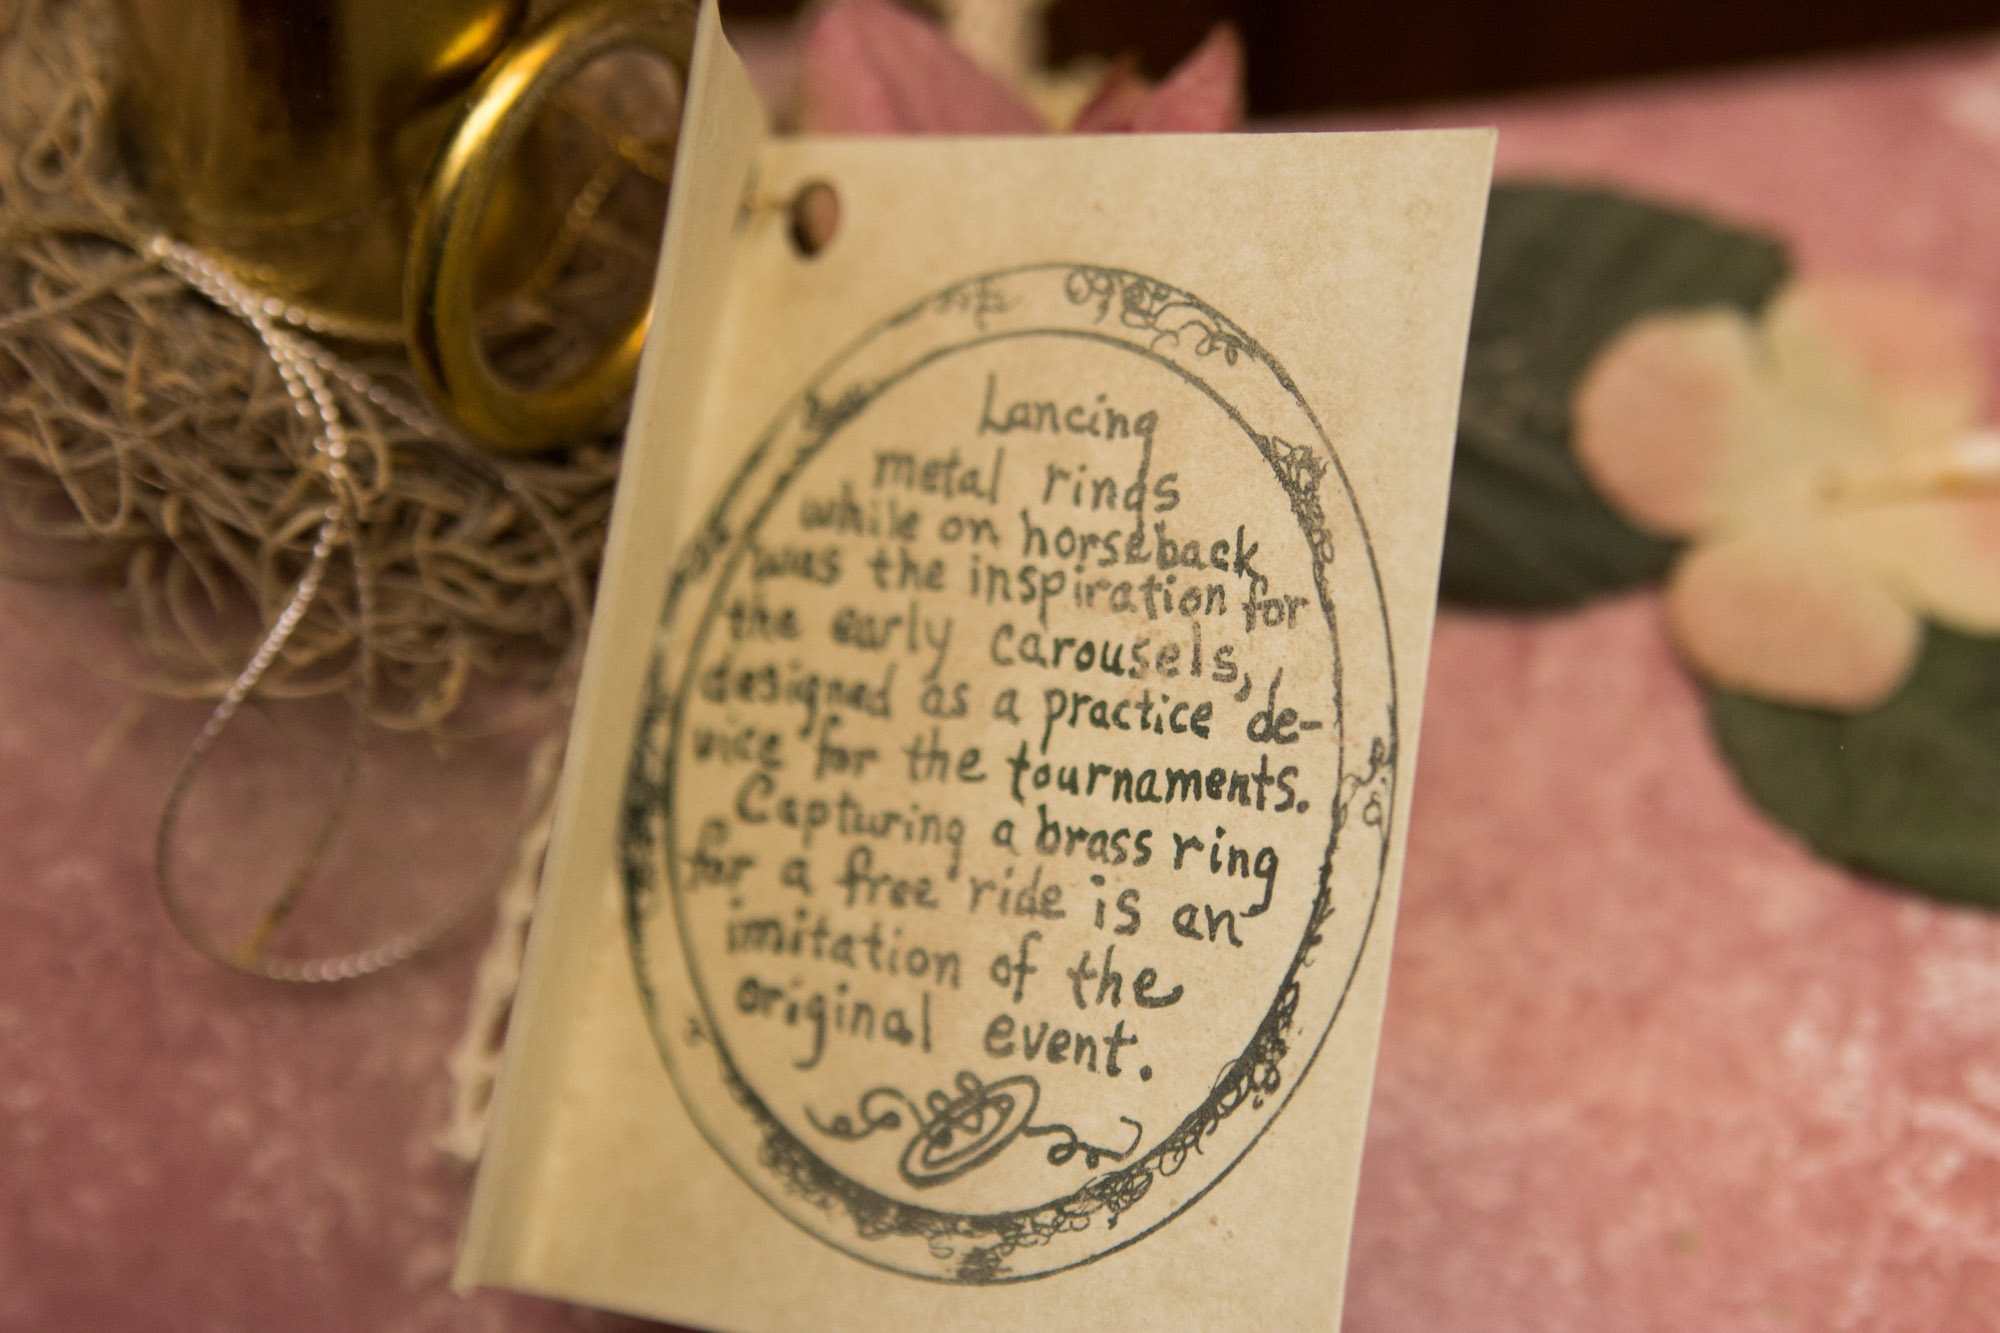 Lancing
metal rings
while on horseback
was the inspiration for
the early carousels,
designed as a practice de-
vice for the tournaments.
Capturing a brass ring
for a free ride is an
imitation of the
original event.